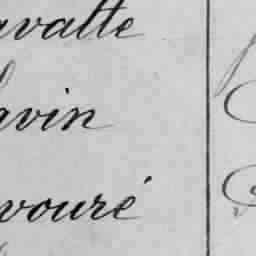 avatte
avin
vouré